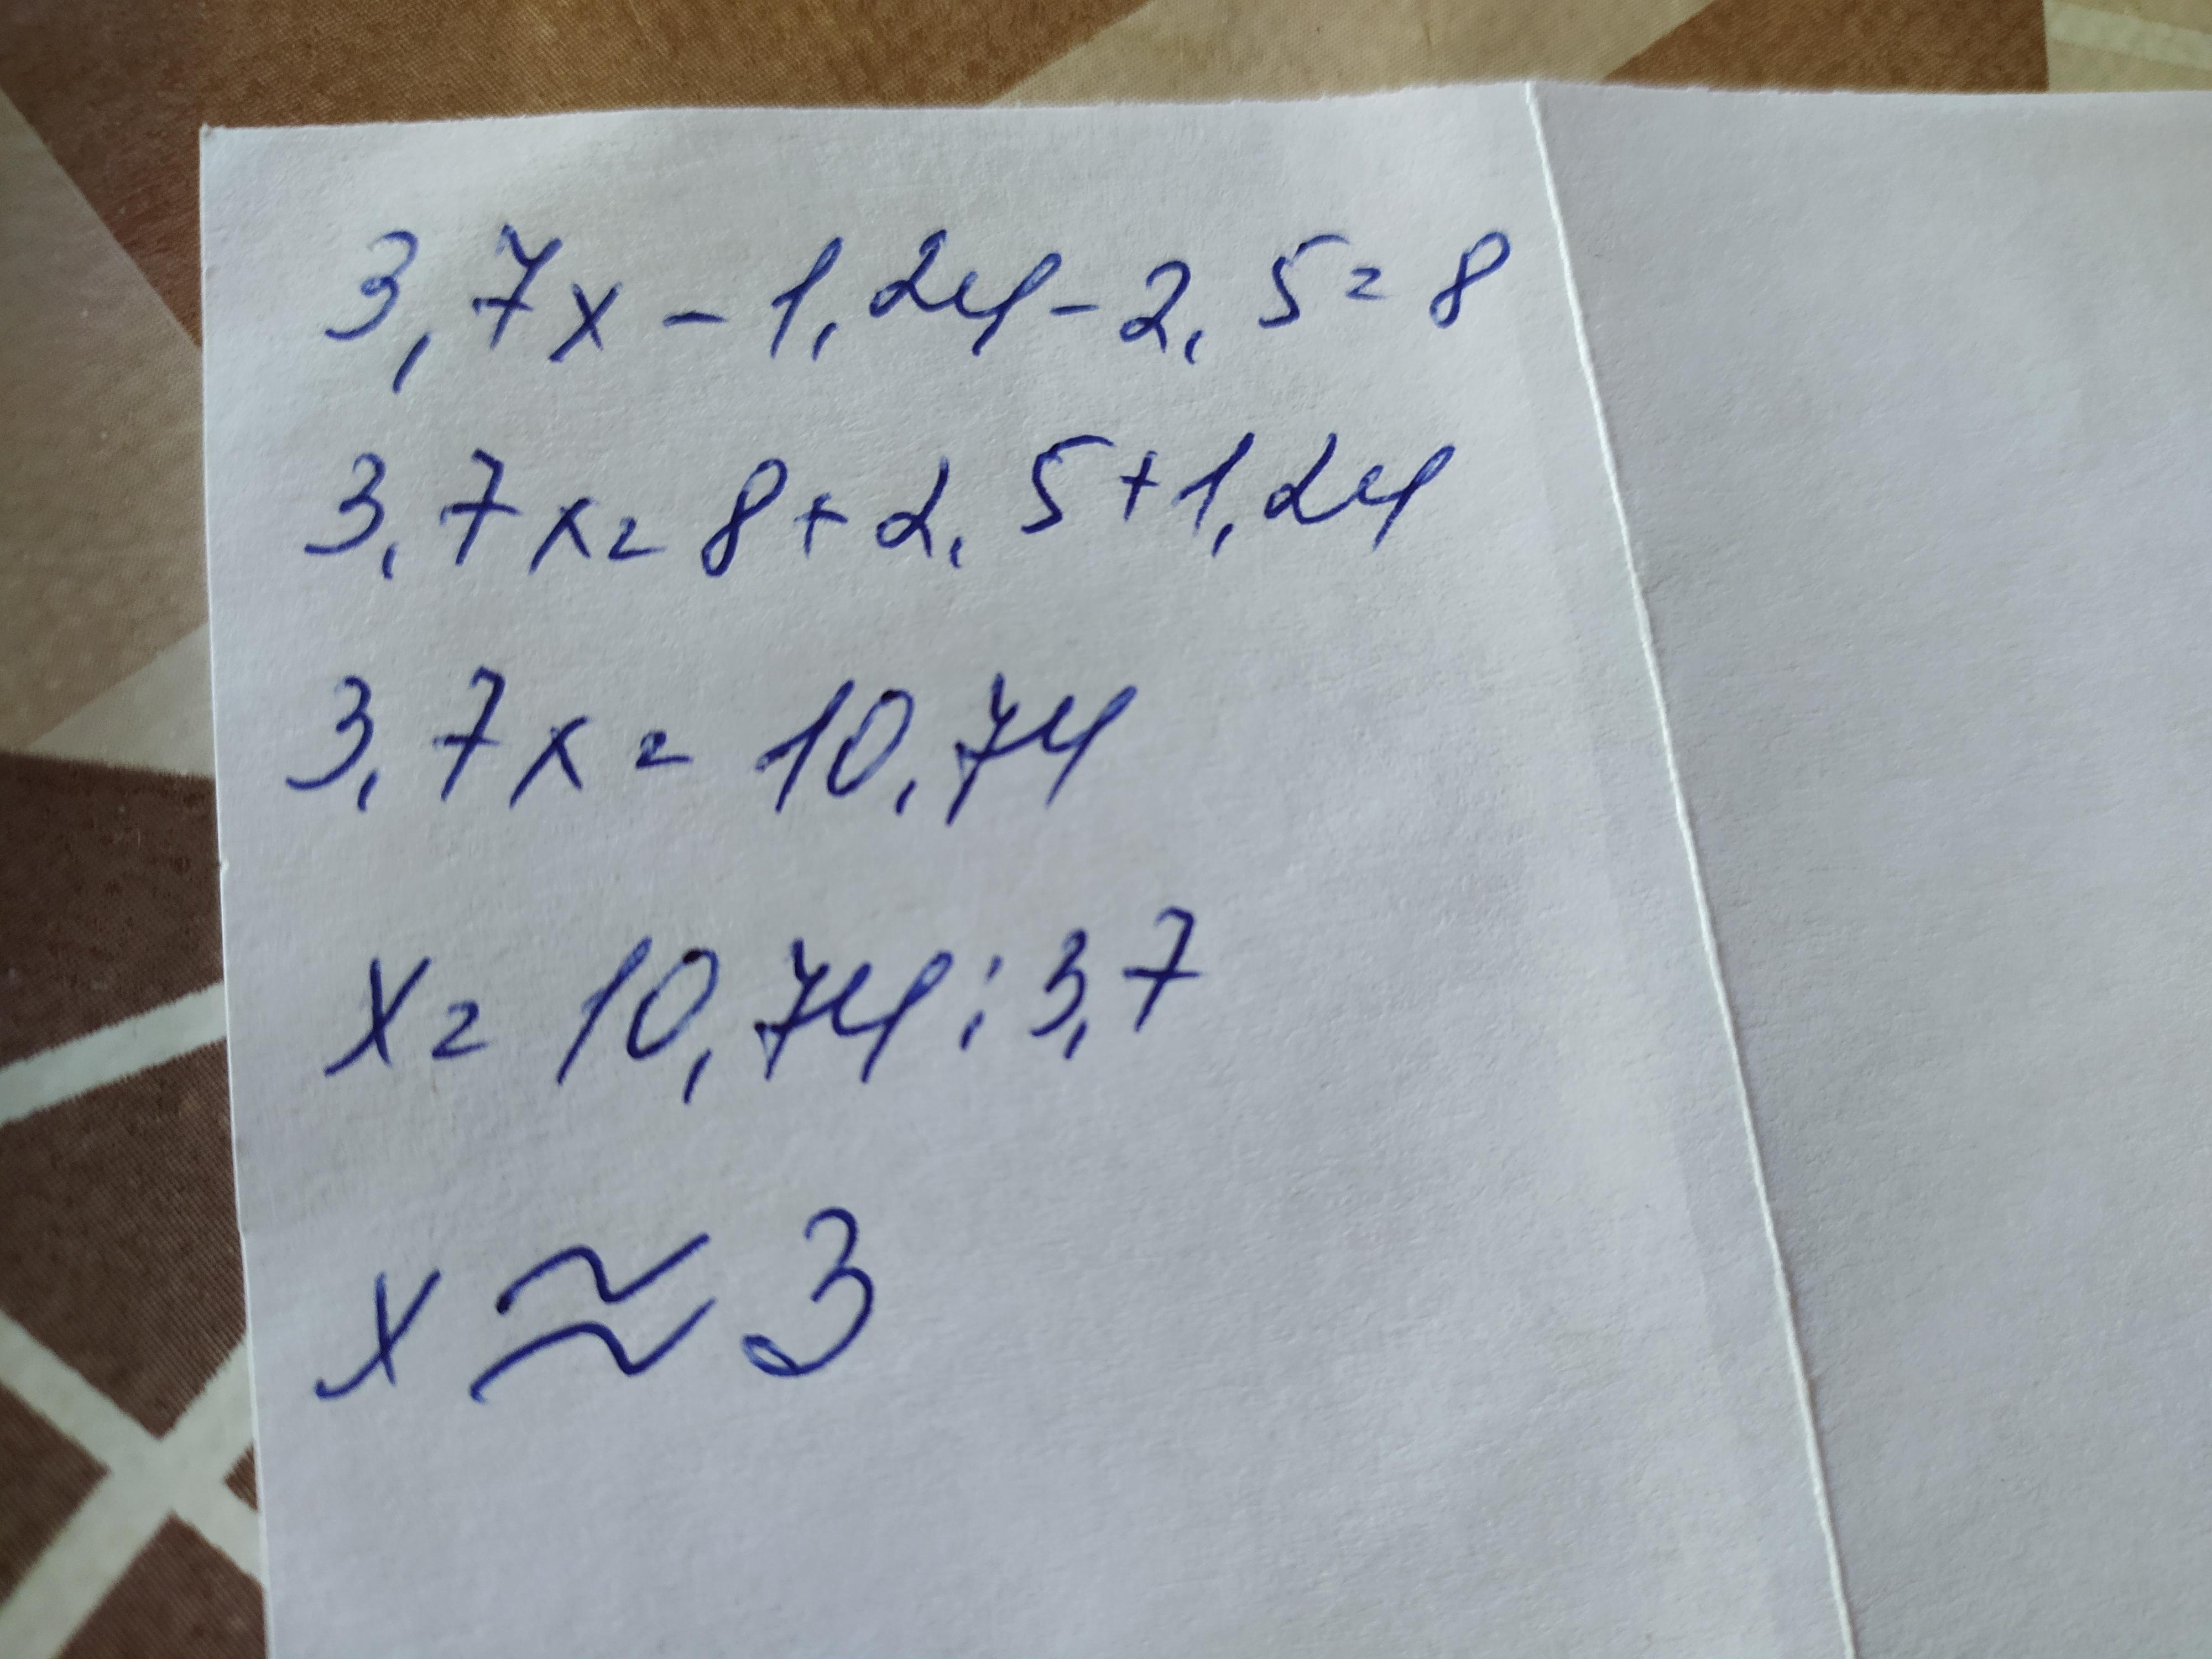 3,7x - 1,24 - 2,5 = 8
3,7x = 8 + 2,5 + 1,24
3,7x = 10,74
x = 10,74 : 3,7
x ≈ 3